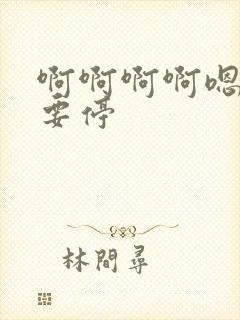 啊啊啊啊嗯
要停
林間尋